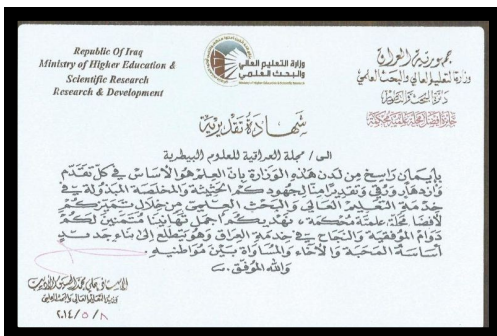 Republic Of Iraq
Ministry of Higher Education &
Scientific Research
Research & Development
وزارة التعليم العالي
والبحث العلمي
جمهورية العراق
وزارة التعليم العالي والبحث العلمي
دائرة البحث والتطوير
جائزة أفضل مجلة علمية محكمة
شهادة تقديرية
الى / مجلة العراقية للعلوم البيطرية
بإيمان راسخ من لدن هذه الوزارة بأن العلم هو الأساس في كل تقدم
وازدهار ورقي وتقديراً منا لجهودكم الحثيثة والمخلصة المبذولة في
خدمة التعليم العالي والبحث العلمي من خلال تميزكم
لأفضل مجلة علمية محكمة، نهديكم أجمل تهانينا متمنين لكم
دوام الموفقية والنجاح في خدمة العراق وهو يتطلع إلى بناء جديد
أساسه المحبة والاخاء والمساواة بين مواطنيه.
والله الموفق..
الأستاذ علي محمد الحسين الأديب
وزير التعليم العالي والبحث العلمي
٢٠١٤/٥/٨